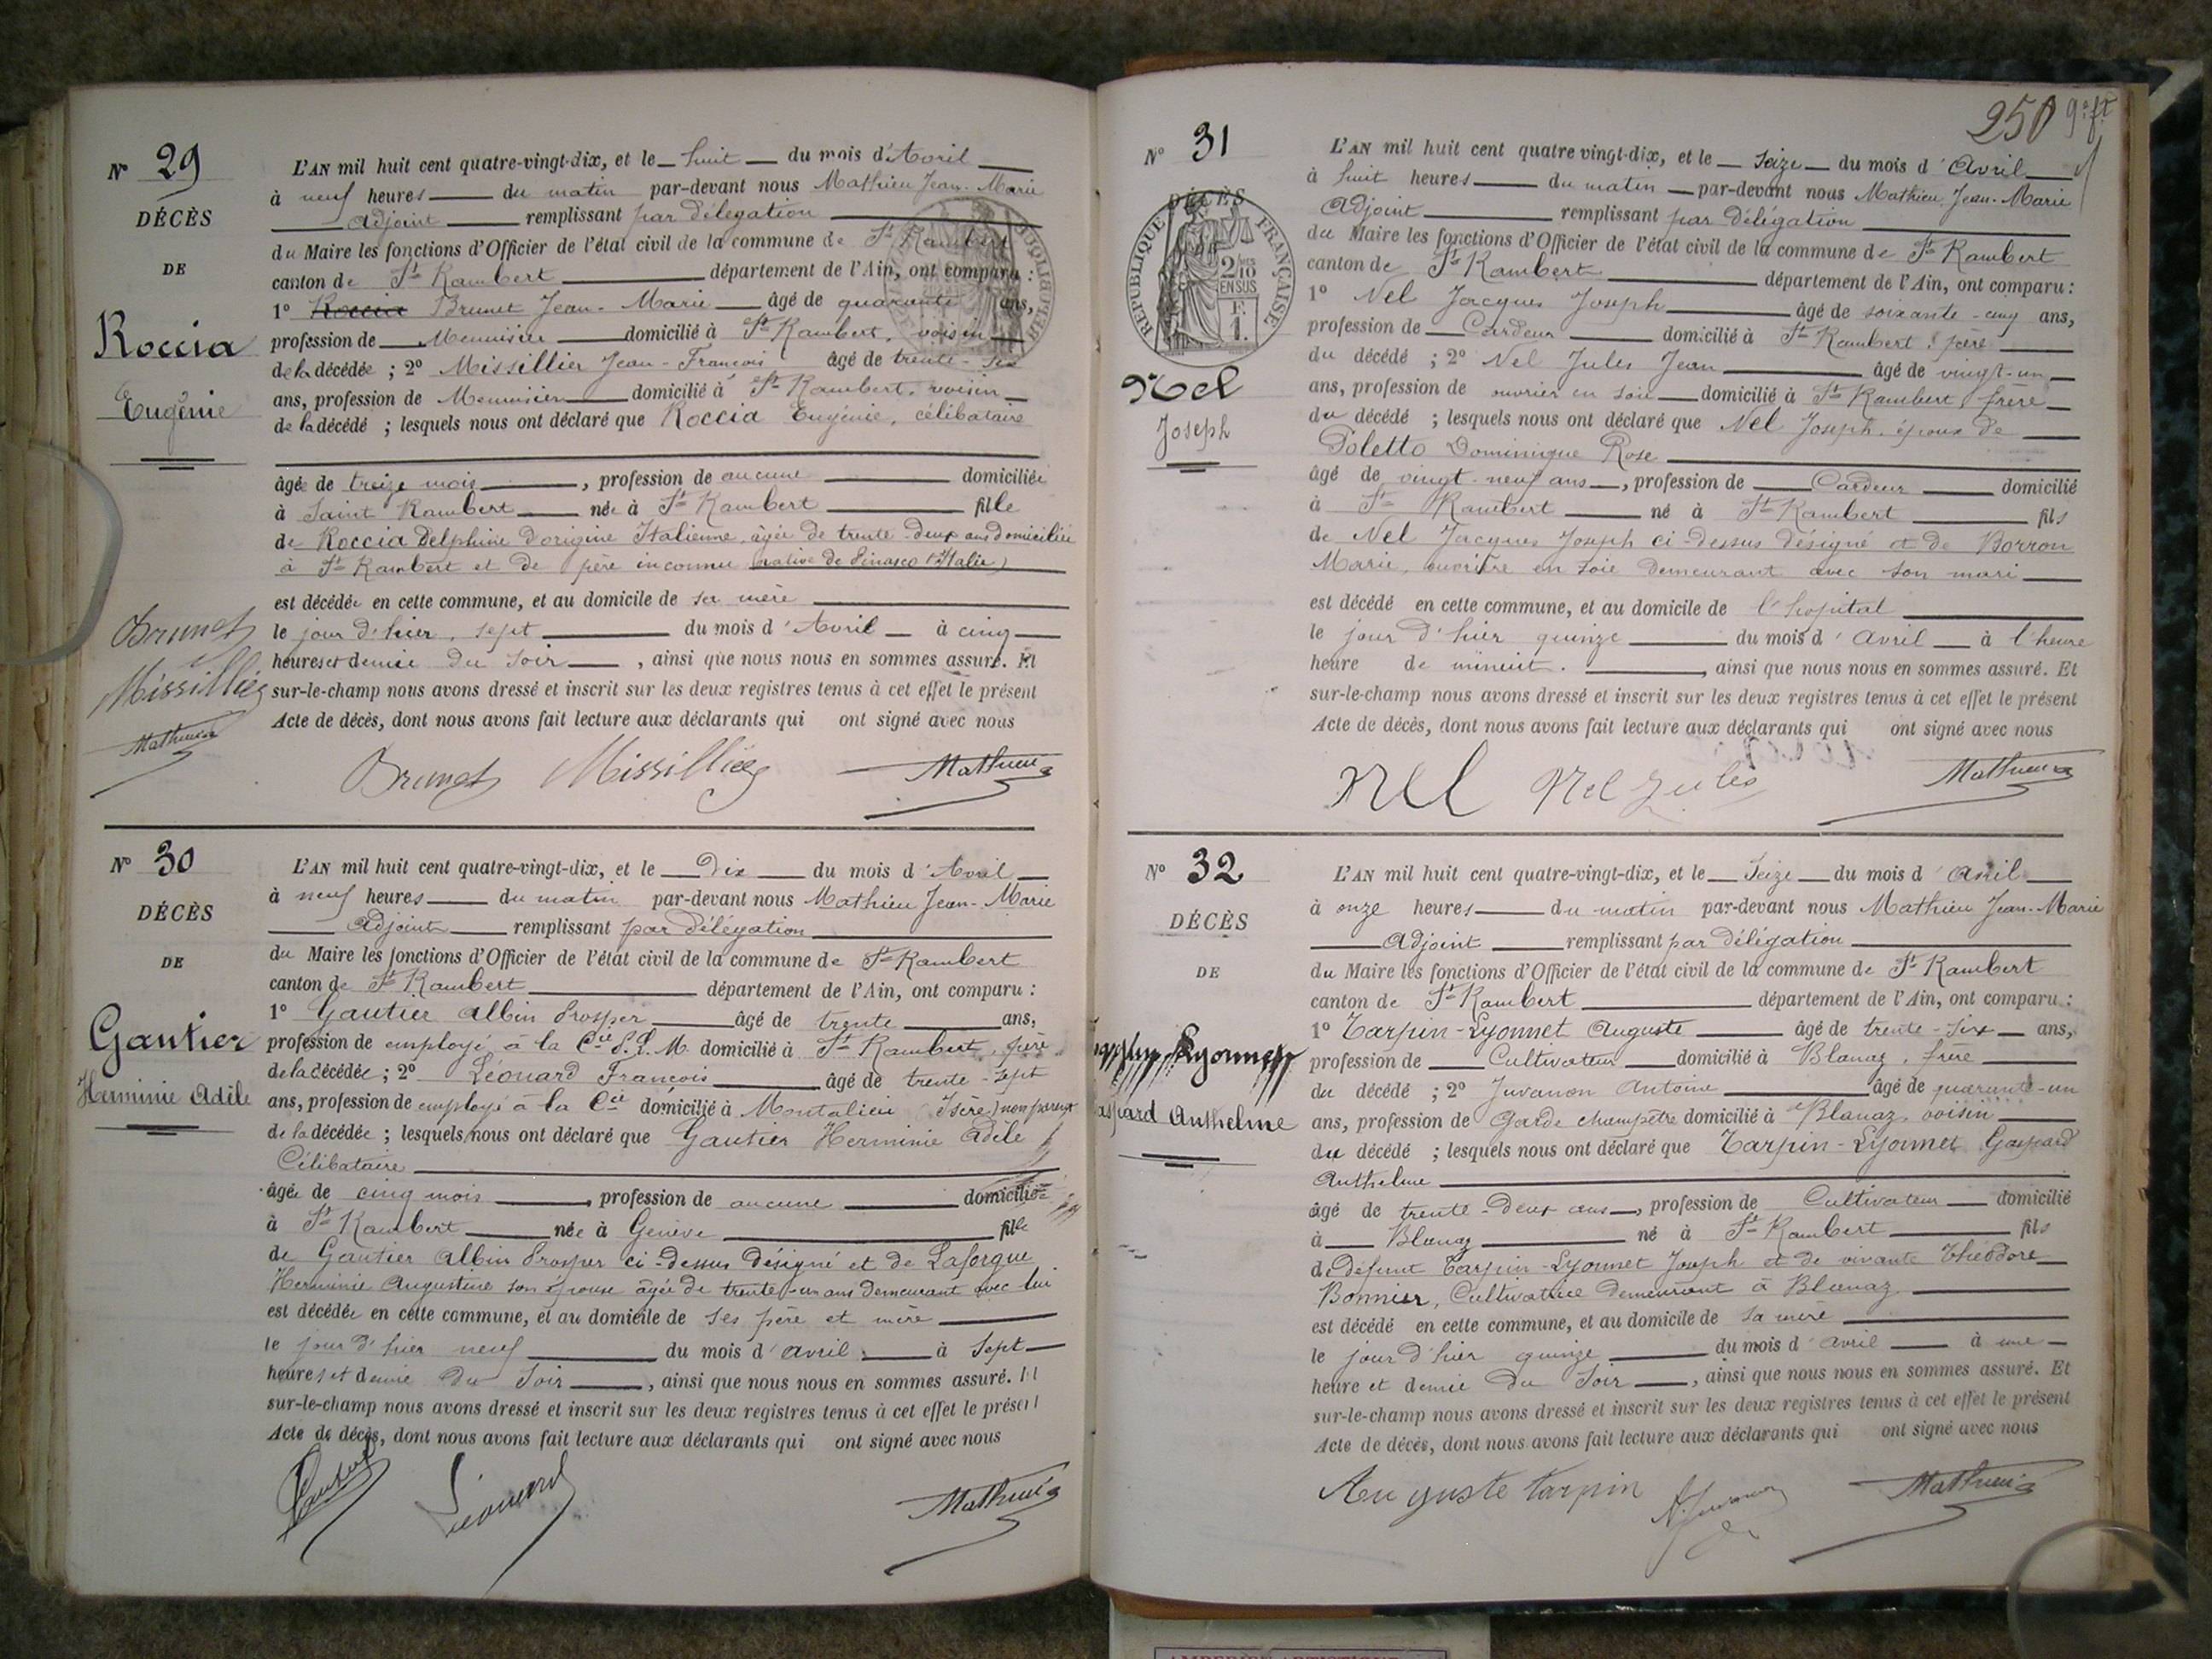 N° 29
DÉCÈS
DE
Roccia
Eugénie
L'AN mil huit cent quatre-vingt-dix, et le huit du mois d'Avril
à neuf heures du matin par-devant nous Mathieu Jean-Marie
adjoint remplissant par délégation
du Maire les fonctions d'Officier de l'état civil de la commune de St Rambert
canton de St Rambert département de l'Ain, ont comparu :
1° Roccia Brunet Jean-Marie âgé de quarante ans,
profession de Menuisier domicilié à St Rambert, voisin
de la décédée ; 2° Missillier Jean-François âgé de trente-six
ans, profession de Menuisier domicilié à St Rambert, voisin
de la décédé ; lesquels nous ont déclaré que Roccia Eugénie, célibataire
âgée de treize mois, profession de aucune domiciliée
à Saint Rambert née à St Rambert fille
de Roccia Delphine d'origine Italienne, âgée de trente-deux ans domiciliée
à St Rambert et de père inconnu native de (Italie)
est décédée en cette commune, et au domicile de sa mère
le jour d'hier, sept du mois d'Avril à cinq
heures et demie du soir, ainsi que nous nous en sommes assuré. Et
sur-le-champ nous avons dressé et inscrit sur les deux registres tenus à cet effet le présent
Acte de décès, dont nous avons fait lecture aux déclarants qui ont signé avec nous
Brunet
Missillier
Mathieu
Brunet Missillier Mathieu
N° 30
DÉCÈS
DE
Gautier
Herminie Adèle
L'AN mil huit cent quatre-vingt-dix, et le Dix du mois d'Avril
à neuf heures du matin par-devant nous Mathieu Jean-Marie
adjoint remplissant par délégation
du Maire les fonctions d'Officier de l'état civil de la commune de St Rambert
canton de St Rambert département de l'Ain, ont comparu :
1° Gautier Albin Prosper âgé de trente ans,
profession de employé à la Cie P. L. M. domicilié à St Rambert, père
de la décédée ; 2° Léonard François âgé de trente-sept
ans, profession de employé à la Cie domicilié à Montalieu (Isère) non parent
de la décédée ; lesquels nous ont déclaré que Gautier Herminie Adèle
Célibataire
âgée de cinq mois, profession de aucune domiciliée
à St Rambert née à Genève fille
de Gautier Albin Prosper ci-dessus désigné et de Laforgue
Herminie Augustine son épouse âgée de trente-un ans demeurant avec lui
est décédée en cette commune, et au domicile de ses père et mère
le jour d'hier neuf du mois d'avril à sept
heures et demie du soir, ainsi que nous nous en sommes assuré. Et
sur-le-champ nous avons dressé et inscrit sur les deux registres tenus à cet effet le présent
Acte de décès, dont nous avons fait lecture aux déclarants qui ont signé avec nous
Gautier Léonard Mathieu
250
N° 31
DÉCÈS
RÉPUBLIQUE FRANÇAISE
2/10 EN SUS
F. 1.
Nel
Joseph
L'AN mil huit cent quatre vingt-dix, et le seize du mois d'Avril
à huit heures du matin par-devant nous Mathieu Jean-Marie
Adjoint remplissant par délégation
du Maire les fonctions d'Officier de l'état civil de la commune de St Rambert
canton de St Rambert département de l'Ain, ont comparu :
1° Nel Jacques Joseph âgé de soixante-cinq ans,
profession de Cardeur domicilié à St Rambert, père
du décédé ; 2° Nel Jules Jean âgé de vingt-un
ans, profession de ouvrier en soie domicilié à St Rambert, frère
du décédé ; lesquels nous ont déclaré que Nel Joseph, époux de
Poletto Dominique Rose
âgé de vingt-neuf ans, profession de Cardeur domicilié
à St Rambert né à St Rambert fils
de Nel Jacques Joseph ci-dessus désigné et de Borron
Marie, ouvrière en soie demeurant avec son mari
est décédé en cette commune, et au domicile de l'hopital
le jour d'hier quinze du mois d'avril à l'heure
heure de minuit., ainsi que nous nous en sommes assuré. Et
sur-le-champ nous avons dressé et inscrit sur les deux registres tenus à cet effet le présent
Acte de décès, dont nous avons fait lecture aux déclarants qui ont signé avec nous
Nel Nel Jules Mathieu
N° 32
DÉCÈS
DE
Lyonnet
Gaspard Anthelme
L'AN mil huit cent quatre-vingt-dix, et le Seize du mois d'Avril
à onze heures du matin par-devant nous Mathieu Jean-Marie
Adjoint remplissant par délégation
du Maire les fonctions d'Officier de l'état civil de la commune de St Rambert
canton de St Rambert département de l'Ain, ont comparu :
1° Tarpin-Lyonnet Auguste âgé de trente-six ans,
profession de Cultivateur domicilié à Blanaz, frère
du décédé ; 2° Juvanon Antoine âgé de quarante-un
ans, profession de Garde champêtre domicilié à Blanaz, voisin
du décédé ; lesquels nous ont déclaré que Tarpin-Lyonnet Gaspard
Anthelme
âgé de trente-deux ans, profession de Cultivateur domicilié
à Blanaz né à St Rambert fils
de défunt Tarpin-Lyonnet Joseph et de vivante Théodore
Bonnier, Cultivatrice demeurant à Blanaz
est décédé en cette commune, et au domicile de sa mère
le jour d'hier quinze du mois d'avril à une
heure et demie du soir, ainsi que nous nous en sommes assuré. Et
sur-le-champ nous avons dressé et inscrit sur les deux registres tenus à cet effet le présent
Acte de décès, dont nous avons fait lecture aux déclarants qui ont signé avec nous
Auguste tarpin Mathieu